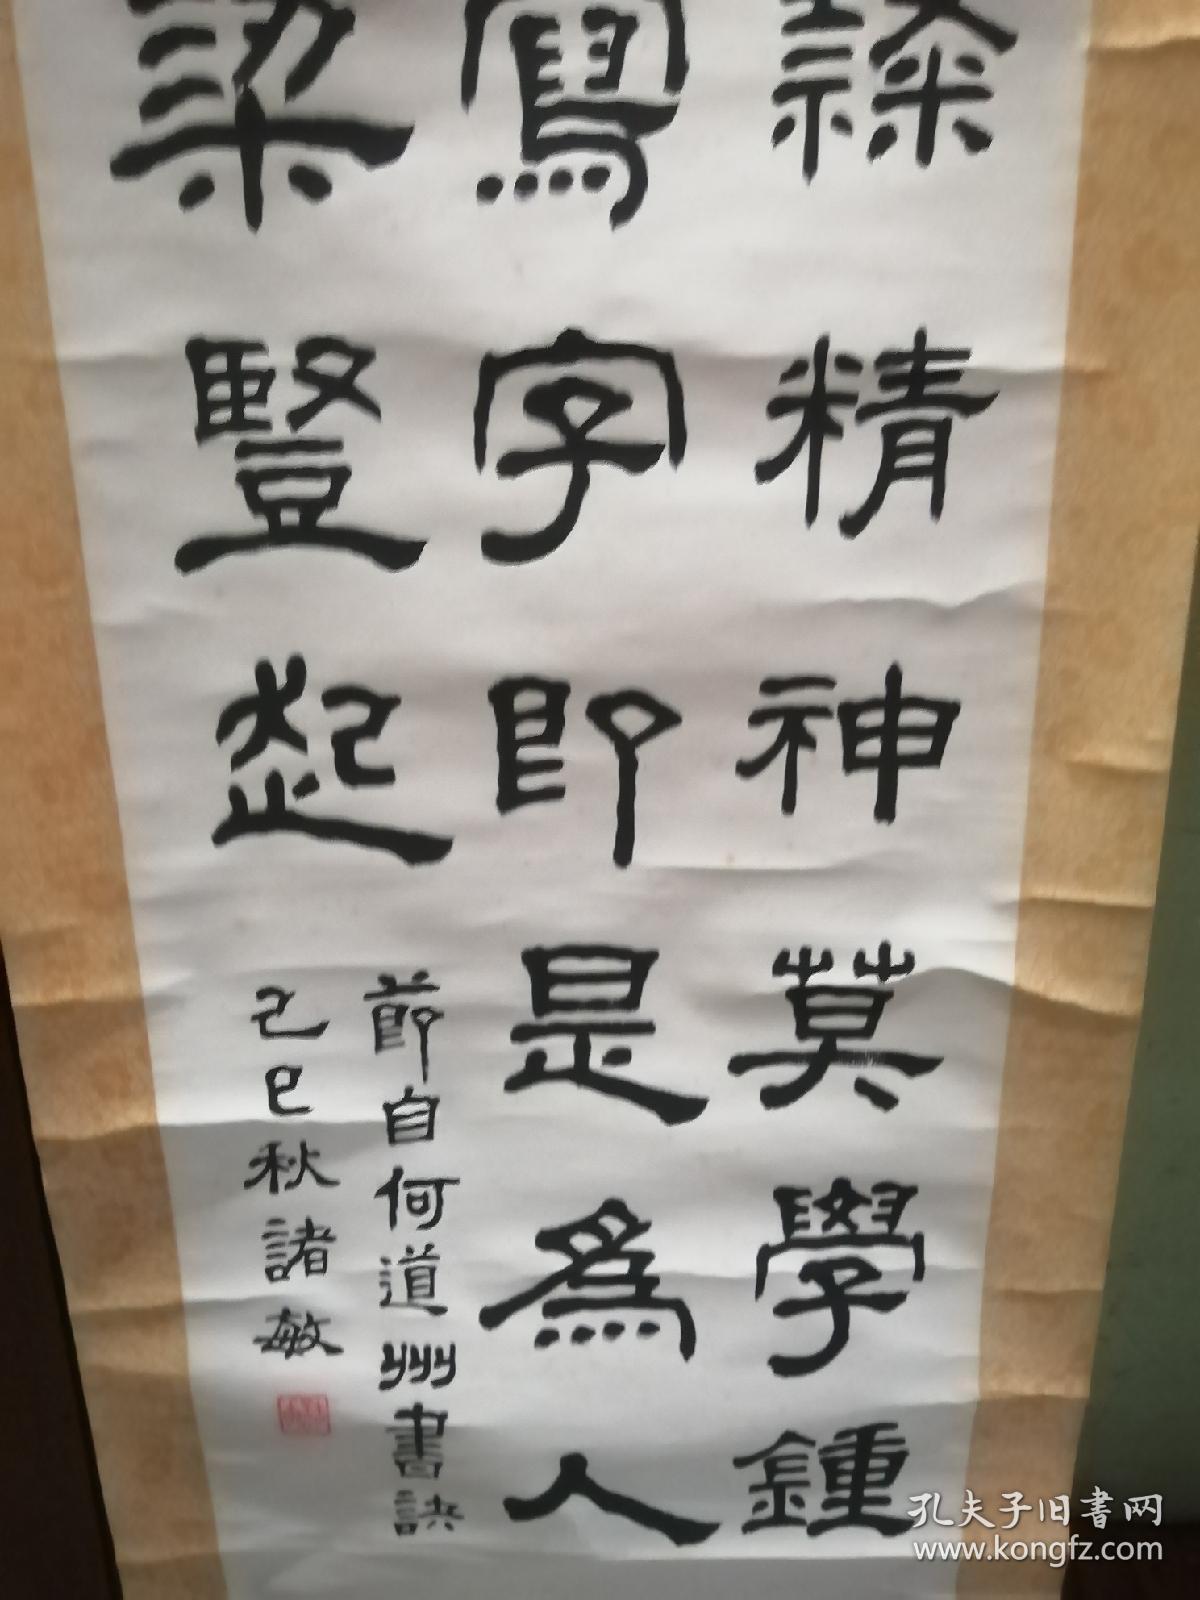 隸精神莫學鍾
寫字即是爲人
梁豎起
節自何道州書訣
己巳秋諸敏
孔夫子旧書网
www.kongfz.com